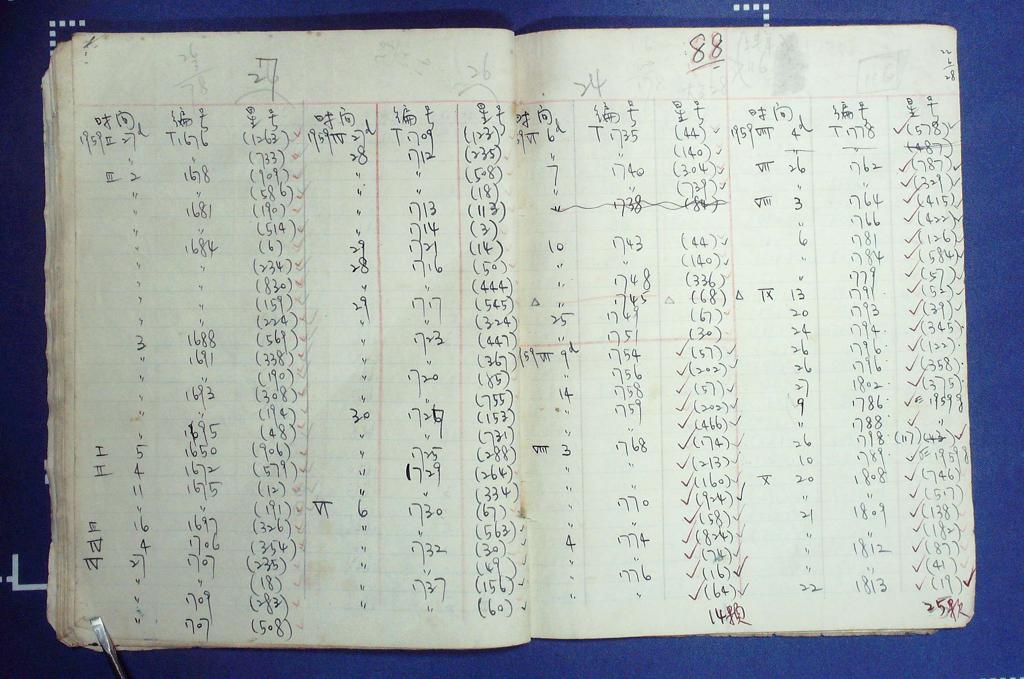 27
时间 编号 星号
1959 II 27d T1676 (1263)
〃 〃 (733)
III 2 1678 (909)
〃 〃 (586)
〃 1681 (190)
〃 〃 (514)
〃 1684 (6)
〃 〃 (234)
〃 〃 (830)
〃 〃 (159)
〃 〃 (224)
3 1688 (569)
〃 1691 (338)
〃 〃 (190)
〃 1693 (308)
〃 〃 (194)
〃 1695 (48)
5 1650 (906)
4 1672 (579)
11 1675 (12)
〃 〃 (191)
16 1697 (326)
4 1706 (354)
27 1707 (235)
〃 〃 (18)
〃 1709 (283)
〃 1707 (508)
26
时间 编号 星号
1959 27d T1709 (123)
28 1712 (235)
〃 〃 (508)
〃 〃 (18)
〃 1713 (113)
〃 1714 (2)
29 1721 (14)
28 1716 (50)
〃 〃 (444)
29 1717 (545)
〃 〃 (324)
〃 1723 (447)
〃 〃 (367)
〃 1720 (85)
〃 〃 (755)
30 (153)
〃 〃 (731)
〃 1725 (288)
〃 1729 (264)
〃 〃 (334)
VI 6 1730 (67)
〃 〃 (563)
〃 1732 (30)
〃 〃 (49)
〃 1737 (156)
〃 〃 (60)
24
88
时间 编号 星号
1959 VI 6d T1735 (44)
〃 〃 (140)
7 1740 (304)
〃 〃 (739)
〃 1738 (84)
10 1743 (44)
〃 〃 (140)
〃 1748 (336)
△ 〃 1745 △ (68)
25 1749 (67)
〃 1751 (30)
1959 VII 9d 1754 (57)
〃 1756 (202)
14 1758 (57)
〃 1759 (202)
〃 〃 (466)
VIII 3 1768 (174)
〃 〃 (213)
〃 〃 (160)
〃 1770 (924)
〃 〃 (58)
4 1774 (824)
〃 〃
〃 1776 (16)
〃 〃 (64)
14颗
时间 编号 星号
1959 VIII 4d T1778 (578)
〃 〃 (487)
VII 26 1762 (787)
〃 〃 (329)
VIII 3 1764 (415)
〃 1766 (422)
6 1781 (126)
〃 1784 (584)
〃 1779 (57)
△ IX 13 1791 (52)
20 1793 (39)
24 1794 (345)
26 1796 (122)
26 1796 (358)
27 1802 (375)
9 1786
〃 1788 〃
26 1798 (117)
10 1789
X 20 1808 (746)
〃 〃 (517)
21 1809 (138)
〃 〃 (182)
〃 1812 (877)
〃 〃 (41)
22 1813 (19)
25颗